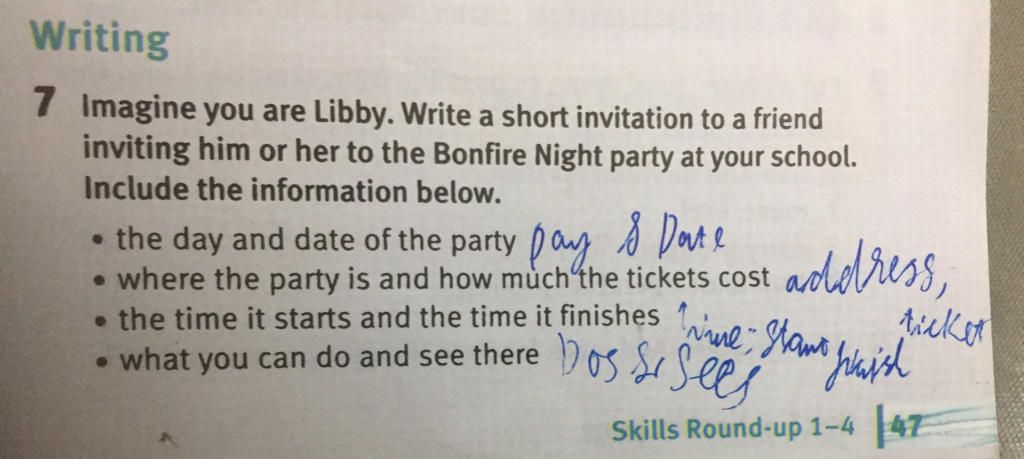 Writing
7 Imagine you are Libby. Write a short invitation to a friend
inviting him or her to the Bonfire Night party at your school.
Include the information below.
• the day and date of the party Day & Date
• where the party is and how much the tickets cost address,
ticket
• the time it starts and the time it finishes Time:
finish
• what you can do and see there Dos & Sees
Skills Round-up 1–4 47